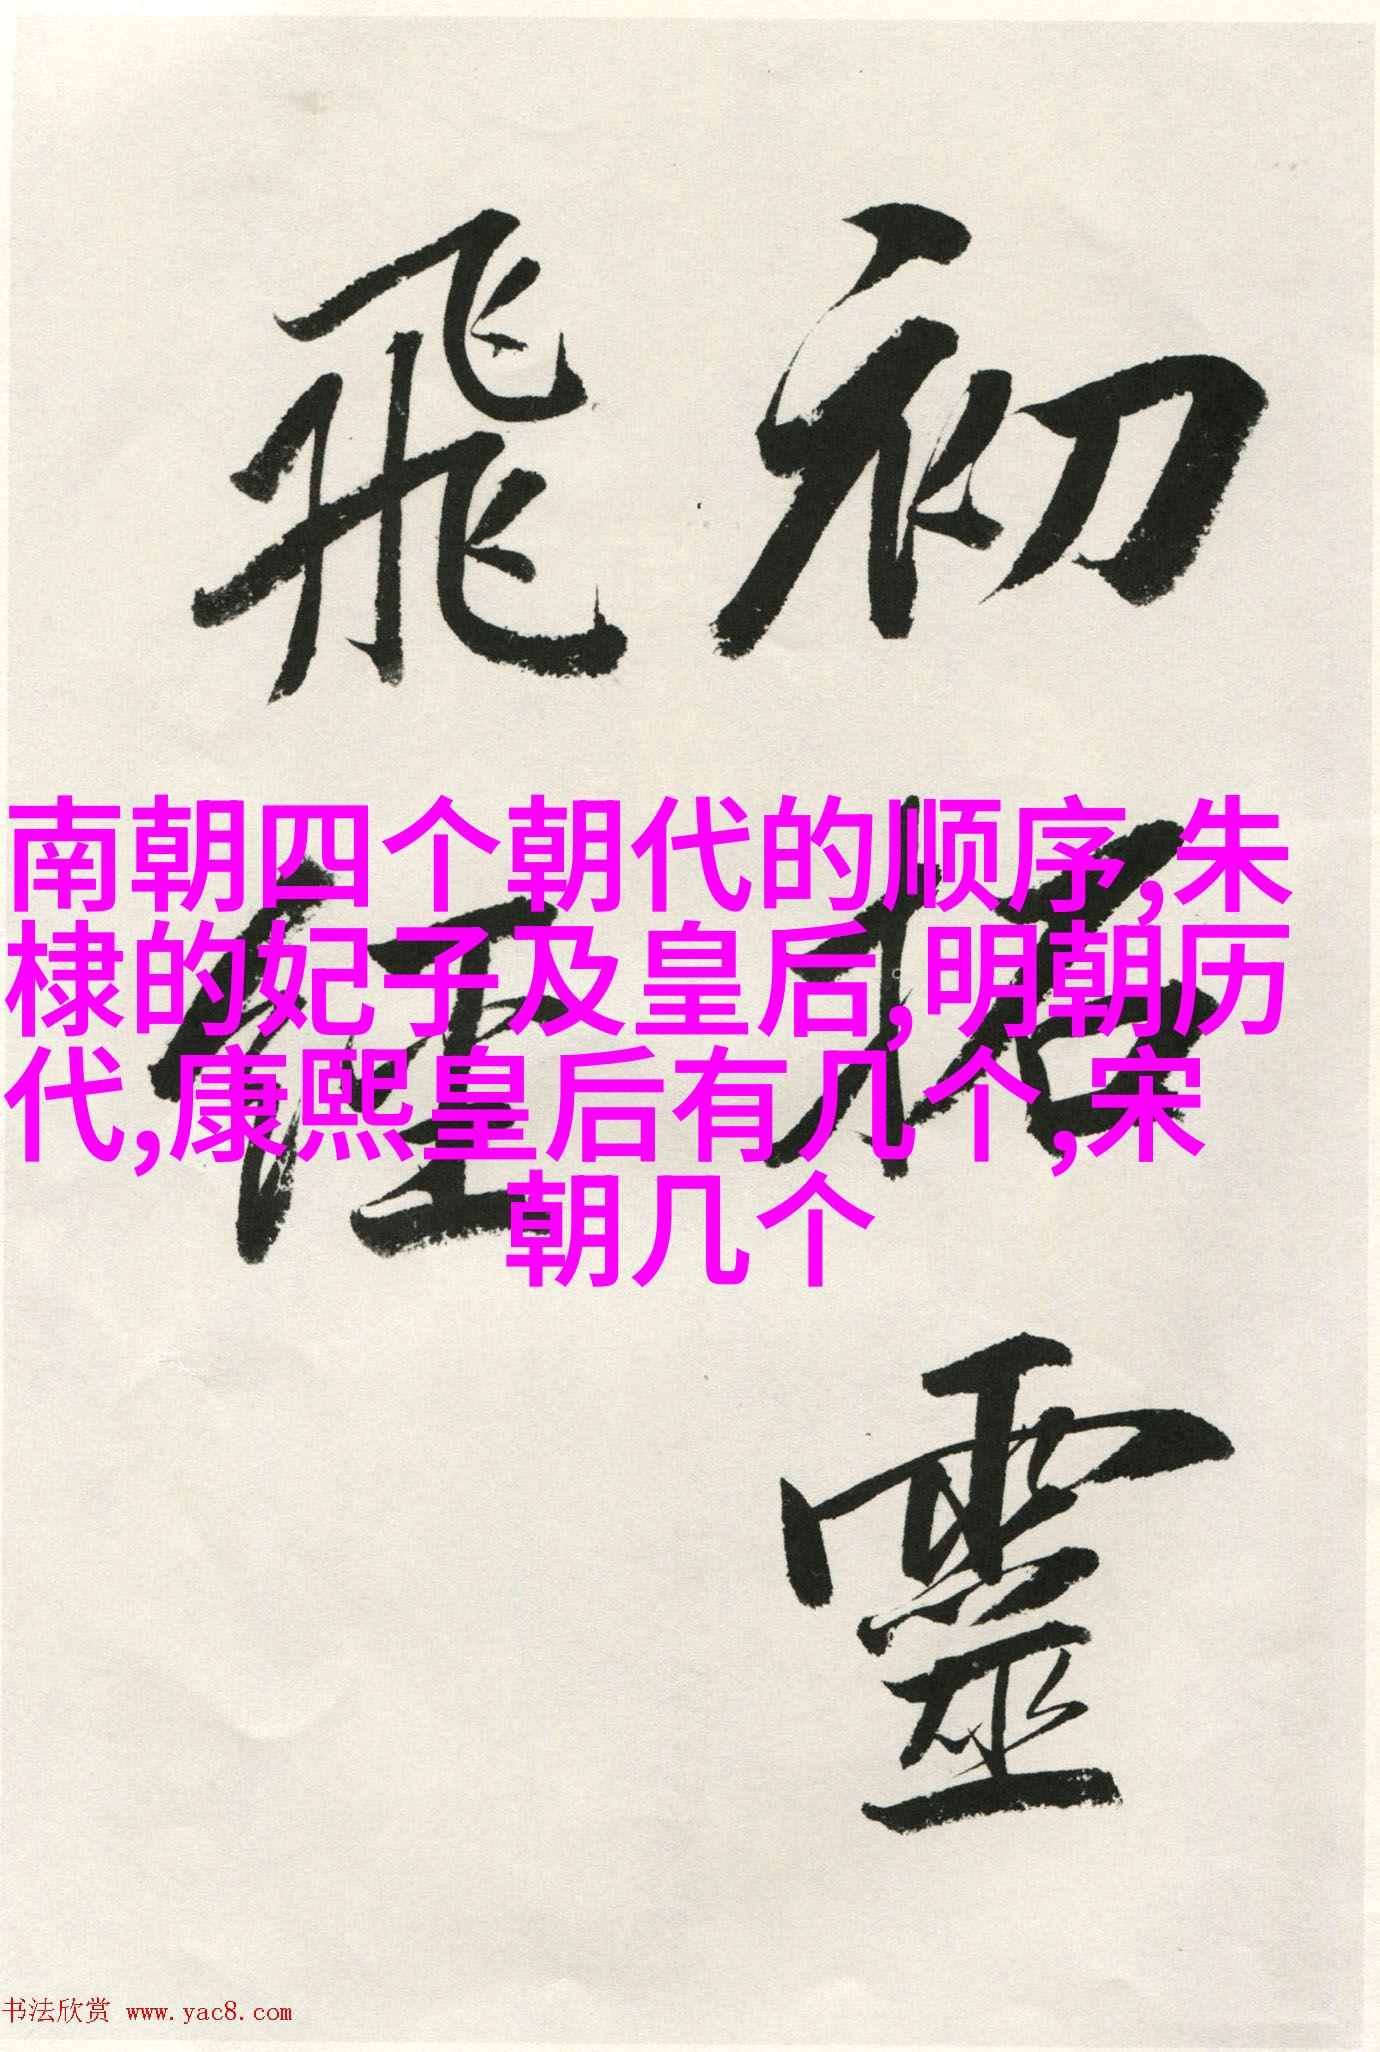 初拓靈
飛經
南朝四个朝代的顺序,朱
棣的妃子及皇后,明朝历
代,康熙皇后有几个,宋
朝几个
书法欣赏 www.yac8.com